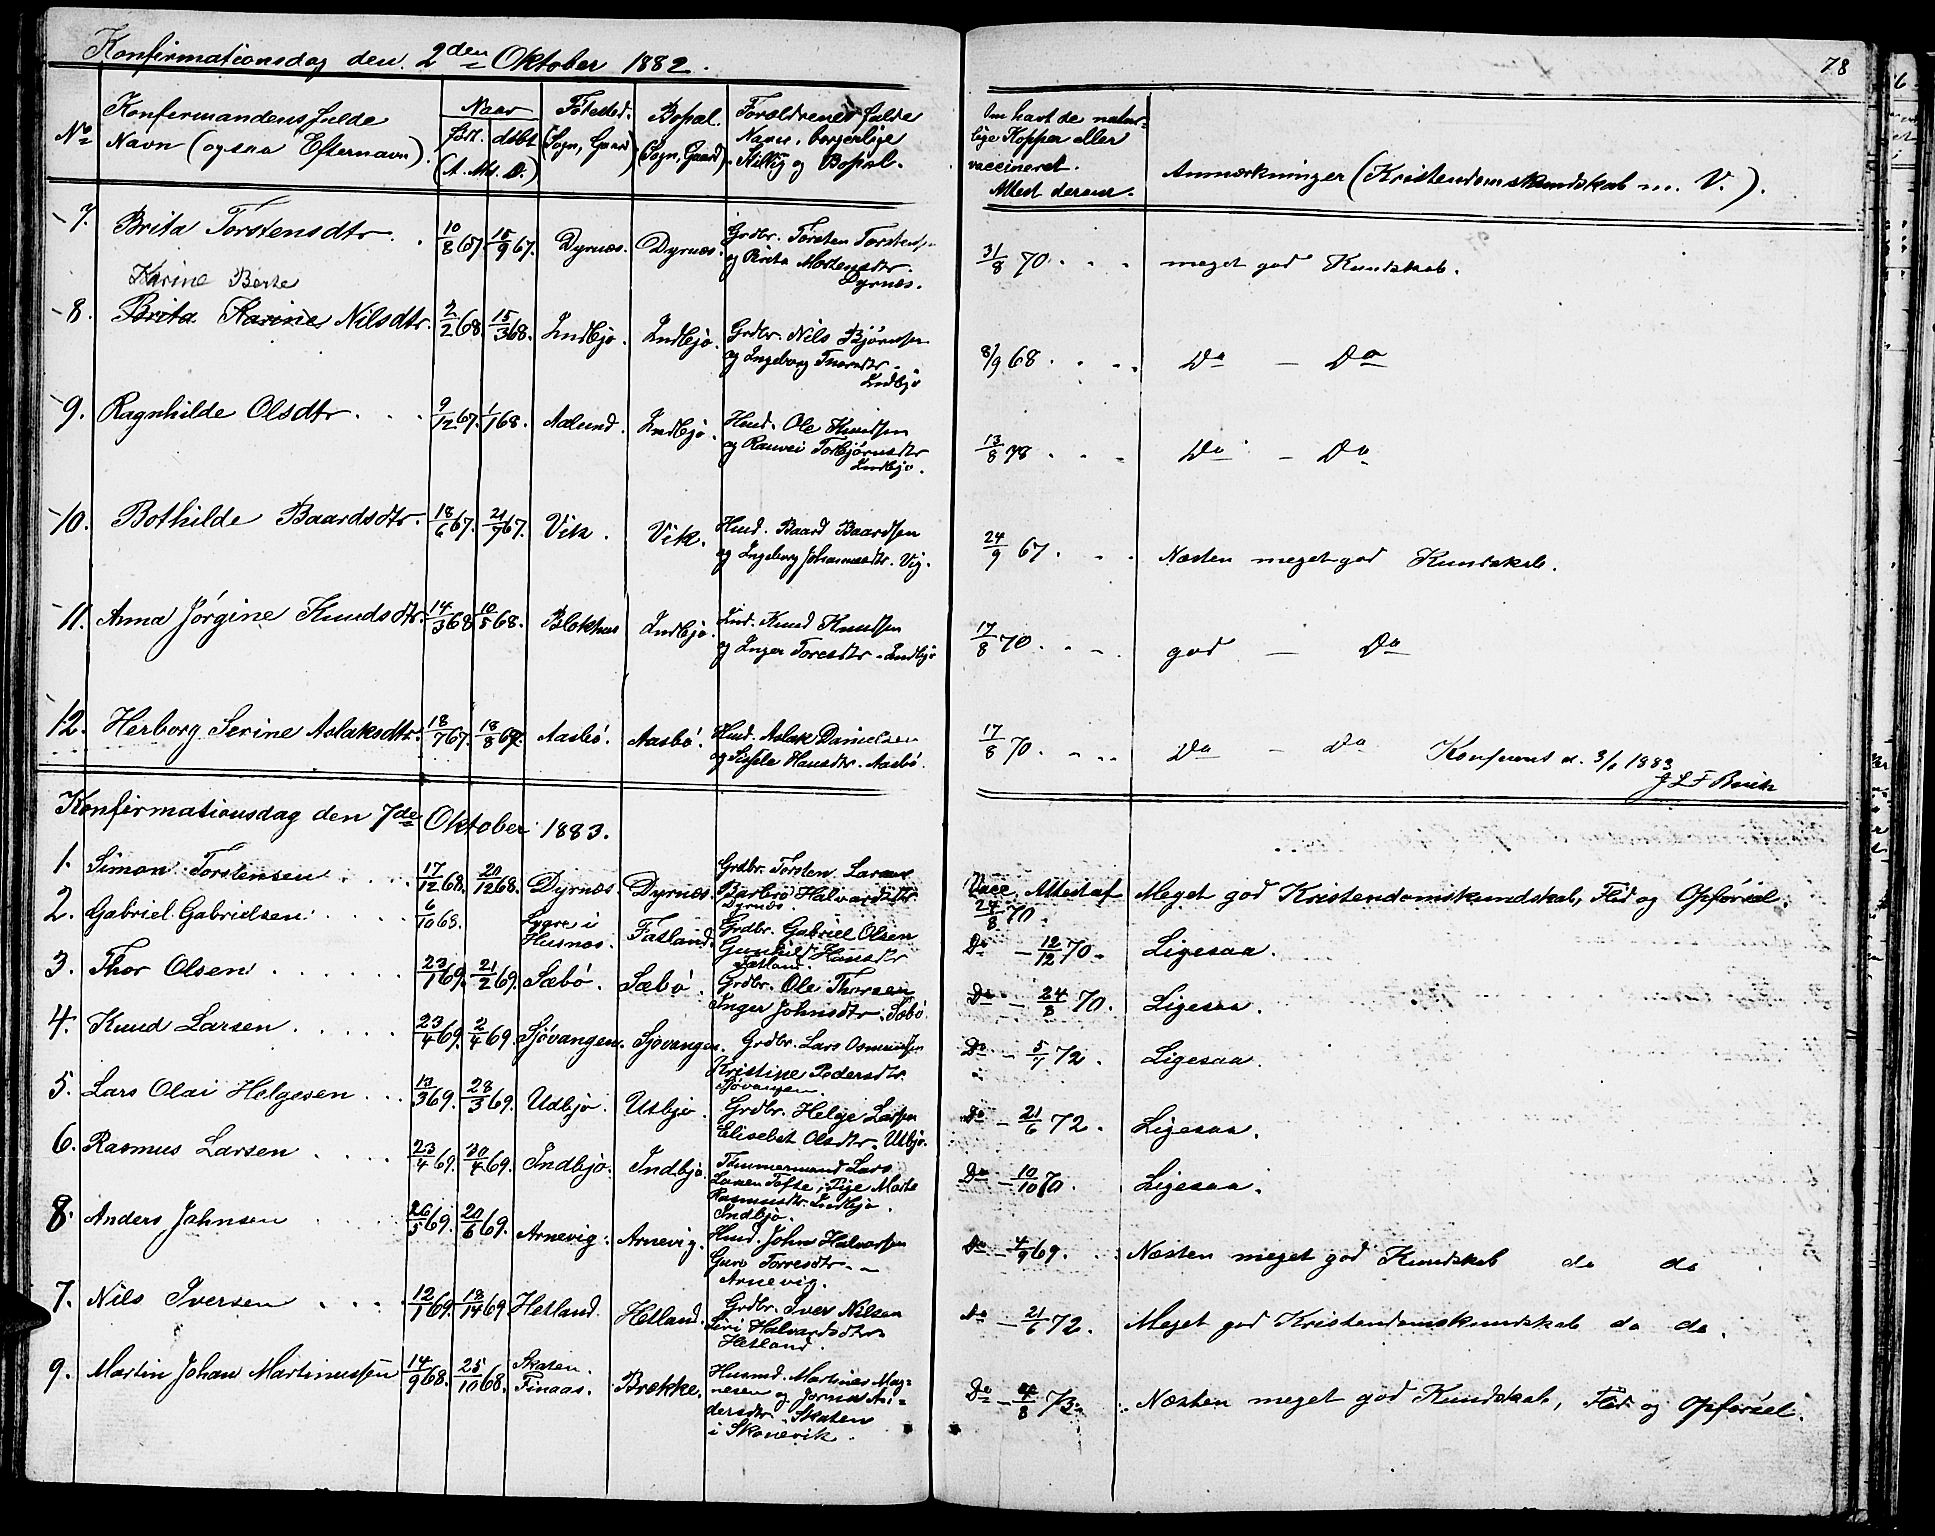 78
Konfirmationsdag den 2den Oktober 1882.
No Konfermandens fulde Navn (ogsaa Efternavn). Naar født. døbt (A. Md. D.) Fødested. (Sogn, Gaard) Bopæl. (Sogn, Gaard) Forældrenes fulde Navn, borgerlige Stillig og Bopæl. Om havt de naturlige Kopper eller vaccineret. Attest derom. Anmærkninger (Kristendomskundskab m. V.).
7. Brita Torstensdtr. 10/8 67. 15/9 67. Dyrnæs. Dyrnæs. Grdbr. Torsten Torstens. og Brita Mortensdtr. Dyrnæs. 31/8 70. meget god Kundskab.
Karine Berte
8. Brita Karine Nilsdtr. 2/2 68. 15/3 68. Indbjo. Indbjo. Grdbr. Nils Bjørnsen og Ingeborg Indbjo 8/9 68. Do - Do
9. Ragnhilde Olsdtr. 9/12 67. 1/1 68. Aalund. Indbjo. Husd. Ole Knudsen og Ranvei Torbjørnsdtr Indbjo. 13/8 78. Do - Do
10. Bothilde Baardsdtr. 18/6 67. 21/7 67. Vik. Vik. Husd. Baard Baardsen og Ingeborg Johannesdtr. Vig. 24/9 67. Næsten meget god Kundskab.
11. Anna Jørgine Knudsdtr. 14/3 68. 10/5 68. Blokhus Indbjo. Ind. Knud Knudsen og Inger Toresdtr. Indbjo 17/8 70. god - Do
12. Herborg Serine Aslaksdtr. 18/7 67. 18/8 67. Aasbø. Aasbø. Husd. Aslak Danielsen og Sissela Hansdtr. Aasbø. 17/8 70. Do - Do Konfirmert d. 3/6 1883
Konfirmationsdag den 7de Oktober 1883.
1. Simon Torstensen 17/12 68. 20/12 68. Dyrnæs. Dyrnæs. Grdbr. Torsten Larsen Barbro Halvardsdtr Dyrnæs Vacc. Attest af 24/8 70. Meget god Kristendomskundskab, Flid og Opførsel.
2. Gabriel Gabrielsen 6/10 68. Lygre i Husnæs. Fatland. Grdbr. Gabriel Olsen Gunhild Hansdtr Fatland. Do - 12/12 70. Ligesaa.
3. Thor Olsen 23/1 69. 21/2 69. Sæbø. Sæbø. Grdbr. Ole Thorsen Inger Johnsdtr. Sæbø. Do - 24/8 70. Ligesaa.
4. Knud Larsen 23/4 69. 2/4 69. Sjøvangen. Sjøvangen. Grdbr. Lars Osmundsen Kristine Pedersdtr. Sjøvangen. Do - 5/7 72. Ligesaa.
5. Lars Olai Helgesen 13/3 69. 28/3 69. Udbjo. Utbjo. Grdbr. Helge Larsen Elisebet Olsdtr. Utbjo. Do - 21/6 72. Ligesaa.
6. Rasmus Larsen 23/4 69. 30/4 69. Indbjo. Indbjo. Tømmermand Lars Larsen Tofte, Pige Marte Rasmusdtr. Indbjo. Indbjo. Do - 10/10 70. Ligesaa.
8. Anders Johnsen 26/5 69. 20/6 69. Arnevig. Arnevig. Husd. John Halvorsen Guro Torresdtr. Arnevig. Do - 4/9 69. Næsten meget god Kundskab do do
7. Nils Iversen 12/1 69. 18/14 69. Hetland. Hetland. Grdbr. Iver Nilsen Siri Halvardsdtr. Hetland. Do - 21/6 72. Meget god Kristendomskundskab do do.
9. Martin Johan Martinussen 14/9 68. 25/10 68. Skaten. Finaas. Brekke. Husmd. Martines Magnesen og Jorina Andersdtr Skaten i Skonevik. Do - 4/8 73. Næsten meget god Kundskab, Flid og Opførsel.